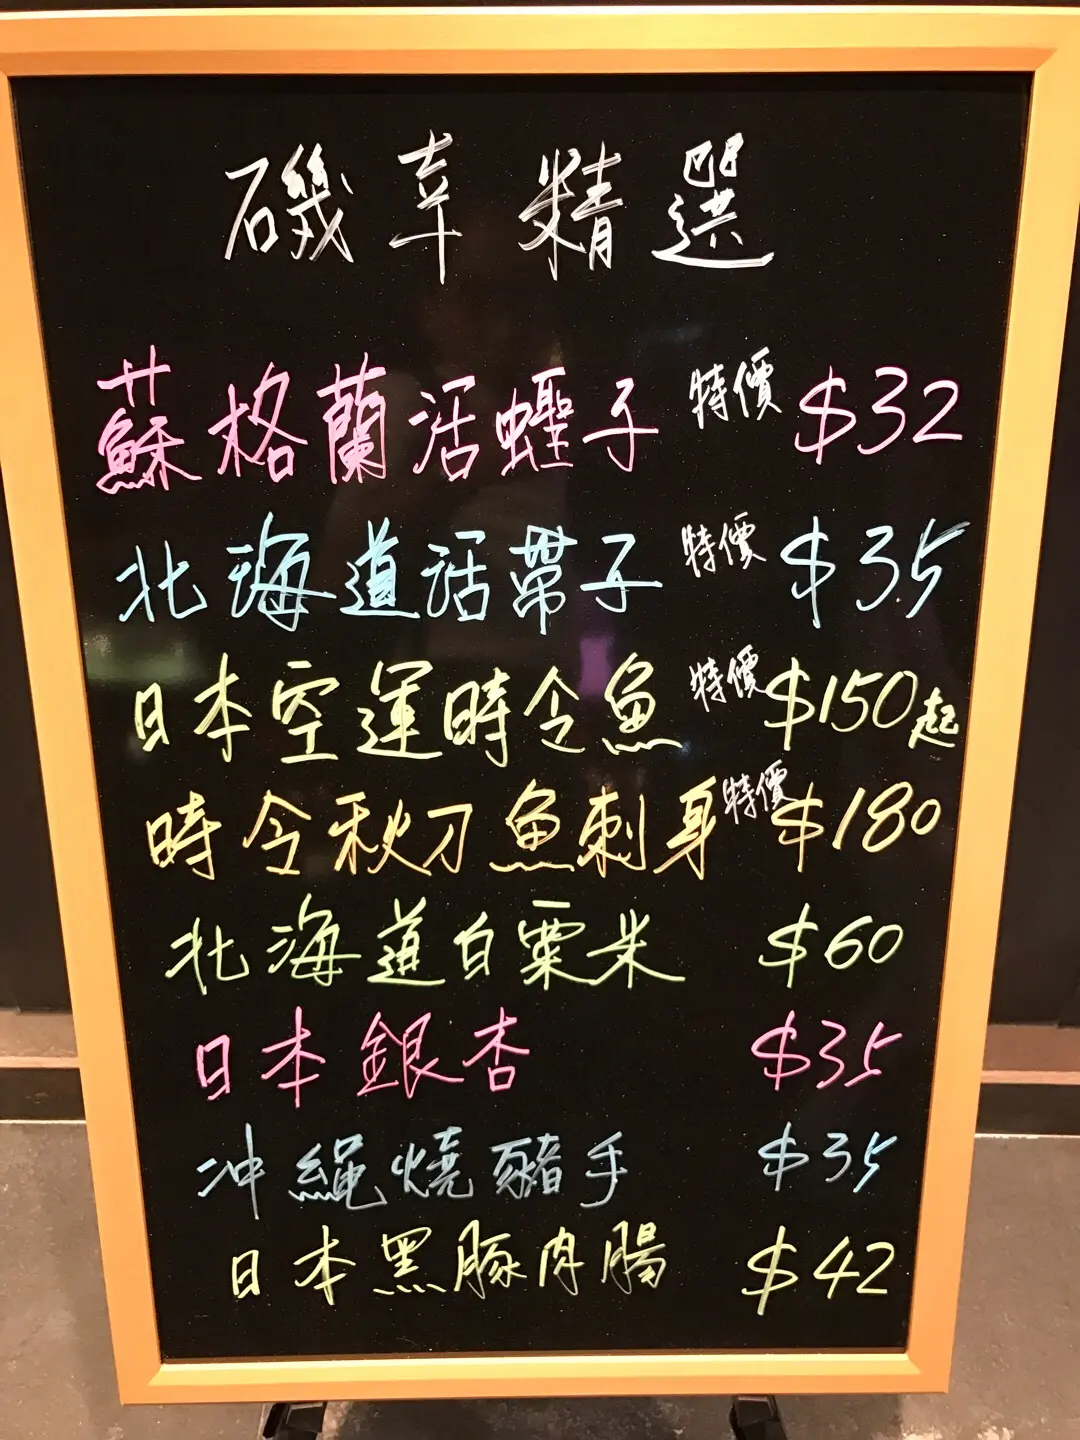 磯幸精選
蘇格蘭活蟶子 特價 $32
北海道活帶子 特價 $35
日本空運時令魚 特價 $150起
時令秋刀魚刺身 特價 $180
北海道白粟米 $60
日本銀杏 $35
沖繩燒豬手 $35
日本黑豚肉腸 $42